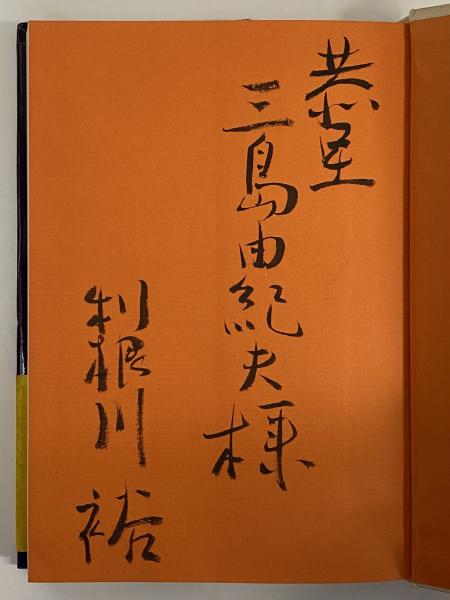 恭呈
三島由紀夫様
利根川裕